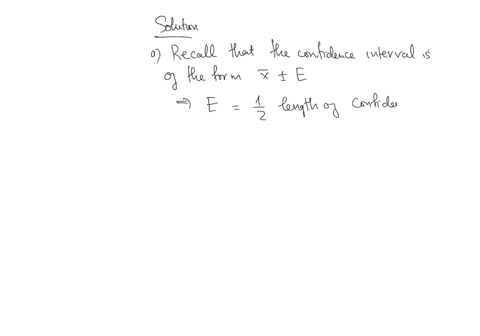 Solution
a) Recall that the confidence interval is
of the form x̄ ± E
⇒ E = 1/2 length of confide